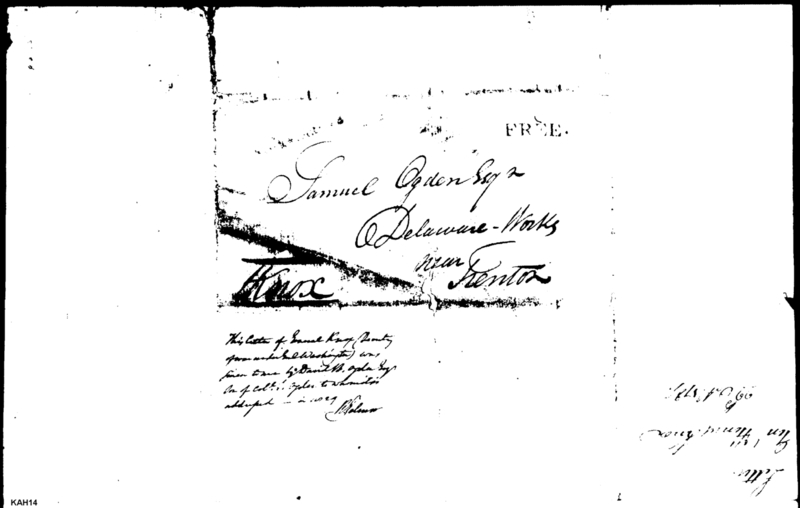 FREE.
Samuel Ogden Esqr
Delaware-Works
near
Trenton
HKnox
This letter of General Knox (Secretary
of war under Genl Washington) was
given to me by David B. Ogden Esq
Son of Col. Ogden to whom it is
addressed in
Letter
Gen Henry Knox
KAH14